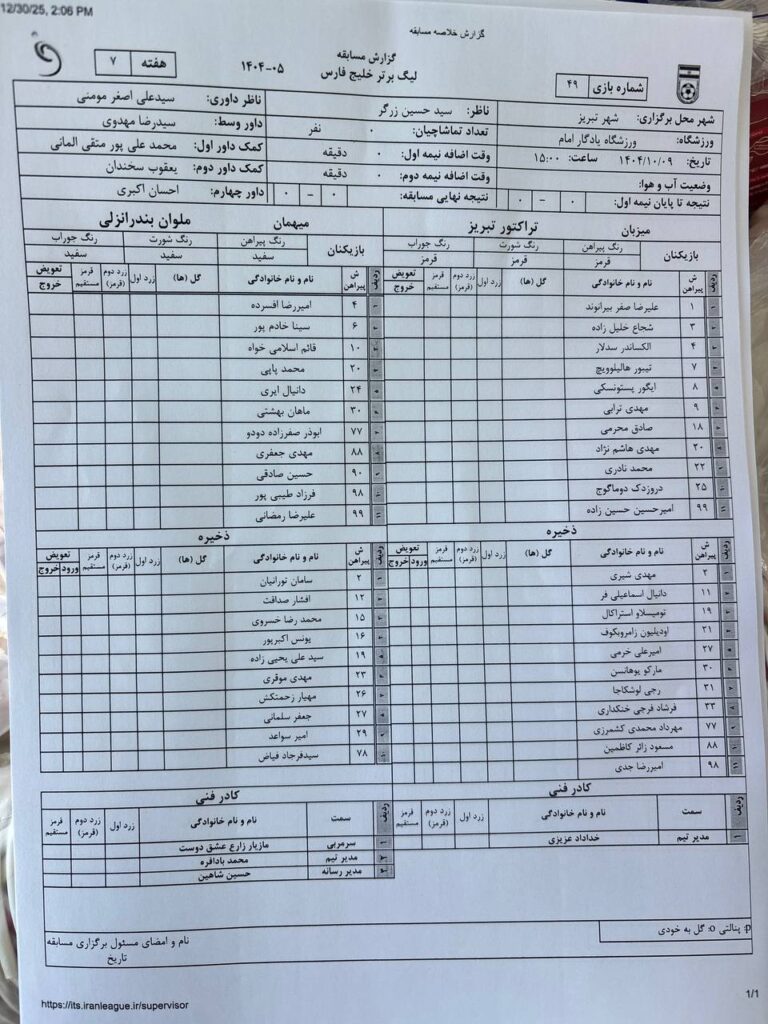 12/30/25, 2:06 PM
گزارش خلاصه مسابقه
گزارش مسابقه
لیگ برتر خلیج فارس
۱۴۰۴-۰۵
هفته ۷
شماره بازی ۴۹
شهر محل برگزاری: شهر تبریز
ورزشگاه: ورزشگاه یادگار امام
تاریخ: ۱۴۰۴/۱۰/۰۹ ساعت: ۱۵:۰۰
وضعیت آب و هوا:
نتیجه تا پایان نیمه اول: ۰ - ۰
ناظر: سید حسین زرگر
تعداد تماشاچیان: ۰ نفر
وقت اضافه نیمه اول: ۰ دقیقه
وقت اضافه نیمه دوم: ۰ دقیقه
نتیجه نهایی مسابقه: ۰ - ۰
ناظر داوری: سیدعلی اصغر مومنی
داور وسط: سیدرضا مهدوی
کمک داور اول: محمد علی پور متقی المانی
کمک داور دوم: یعقوب سخندان
داور چهارم: احسان اکبری
میزبان تراکتور تبریز
بازیکنان رنگ پیراهن رنگ شورت رنگ جوراب
قرمز قرمز قرمز
ردیف ش پیراهن نام و نام خانوادگی گل (ها) زرد اول زرد دوم (قرمز) قرمز مستقیم تعویض خروج
۱ ۱ علیرضا صفر بیرانوند
۲ ۳ شجاع خلیل زاده
۳ ۴ الکساندر سدلار
۴ ۷ تیبور هالیلوویچ
۵ ۸ ایگور پستونسکی
۶ ۹ مهدی ترابی
۷ ۱۸ صادق محرمی
۸ ۲۰ مهدی هاشم نژاد
۹ ۲۲ محمد نادری
۱۰ ۲۵ دروزدک دوماگوج
۱۱ ۹۹ امیرحسین حسین زاده
ذخیره
ردیف ش پیراهن نام و نام خانوادگی گل (ها) زرد اول زرد دوم (قرمز) قرمز مستقیم تعویض ورود خروج
۱ ۲ مهدی شیری
۲ ۱۱ دانیال اسماعیلی فر
۳ ۱۹ تومیسلاو استراکال
۴ ۲۱ اودیلیون زامروبکوف
۵ ۲۷ امیرعلی خرمی
۶ ۳۰ مارکو یوهانسن
۷ ۳۱ رجی لوشکاجا
۸ ۳۳ فرشاد فرجی خنکداری
۹ ۷۷ مهرداد محمدی کشمرزی
۱۰ ۸۸ مسعود زائر کاظمین
۱۱ ۹۸ امیررضا جدی
کادر فنی
ردیف سمت نام و نام خانوادگی زرد اول زرد دوم (قرمز) قرمز مستقیم
۱ مدیر تیم خداداد عزیزی
میهمان ملوان بندرانزلی
بازیکنان رنگ پیراهن رنگ شورت رنگ جوراب
سفید سفید سفید
ردیف ش پیراهن نام و نام خانوادگی گل (ها) زرد اول زرد دوم (قرمز) قرمز مستقیم تعویض خروج
۱ ۴ امیررضا افسرده
۲ ۶ سینا خادم پور
۳ ۱۰ قائم اسلامی خواه
۴ ۲۰ محمد پاپی
۵ ۲۴ دانیال ایری
۶ ۳۰ ماهان بهشتی
۷ ۷۷ ابوذر صفرزاده دودو
۸ ۸۸ مهدی جعفری
۹ ۹۰ حسین صادقی
۱۰ ۹۸ فرزاد طیبی پور
۱۱ ۹۹ علیرضا رمضانی
ذخیره
ردیف ش پیراهن نام و نام خانوادگی گل (ها) زرد اول زرد دوم (قرمز) قرمز مستقیم تعویض ورود خروج
۱ ۲ سامان تورانیان
۲ ۱۲ افشار صداقت
۳ ۱۵ محمد رضا خسروی
۴ ۱۶ یونس اکبرپور
۵ ۱۹ سید علی یحیی زاده
۶ ۲۳ مهدی موقری
۷ ۲۶ مهیار زحمتکش
۸ ۲۷ جعفر سلمانی
۹ ۲۹ امیر سواعد
۱۰ ۷۸ سیدفرجاد فیاض
کادر فنی
ردیف سمت نام و نام خانوادگی زرد اول زرد دوم (قرمز) قرمز مستقیم
۱ سرمربی مازیار زارع عشق دوست
۲ مدیر تیم محمد بادافره
۳ مدیر رسانه حسین شاهین
p: پنالتی o: گل به خودی
نام و امضای مسئول برگزاری مسابقه
تاریخ
https://its.iranleague.ir/supervisor
1/1